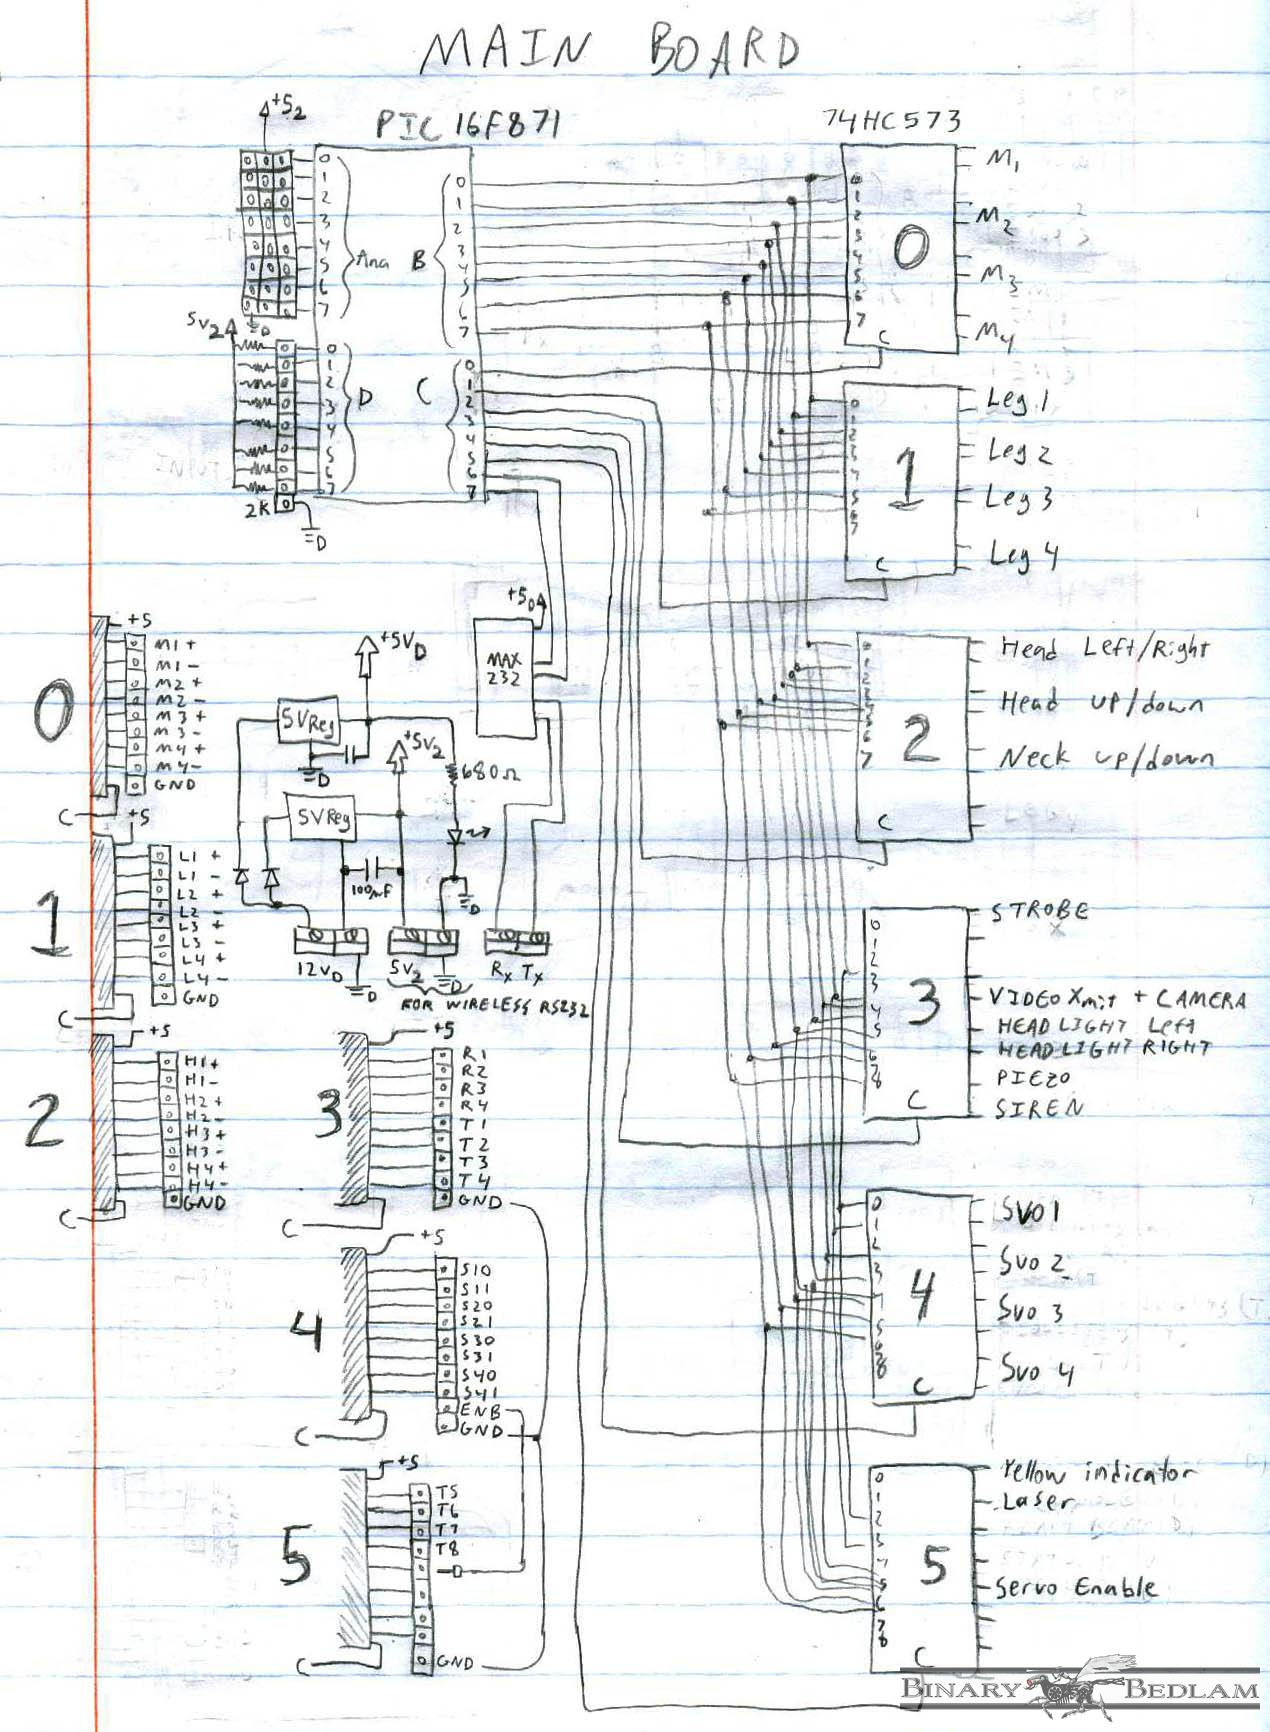 MAIN BOARD
+5₂
PIC 16F871
74HC573
0
1
2
3
4
5
6
7
Ana
B
0
1
2
3
4
5
6
7
D
5V₂
0
1
2
3
4
5
6
7
D
C
0
1
2
3
4
5
6
7
2K
D
0
1
2
3
6
7
0
C
M₁
M₂
M₃
M₄
0
1
C
Leg 1
Leg 2
Leg 3
Leg 4
2
7
C
Head Left/Right
Head up/down
Neck up/down
0
1
2
3
4
5
6
8
3
C
STROBE
VIDEO Xmit + CAMERA
HEADLIGHT Left
HEADLIGHT RIGHT
PIEZO
SIREN
0
1
2
3
4
C
SVO1
SVO 2
SVO 3
SVO 4
0
1
2
5
C
Yellow indicator
Laser
Servo Enable
+5
0
M1+
M1-
M2+
M2-
M3+
M3-
M4+
M4-
GND
C
+5
1
L1 +
L1 -
L2 +
L2 -
L3 +
L3 -
L4 +
L4 -
GND
C
+5
2
H1+
H1-
H2+
H2-
H3+
H3-
H4+
H4-
GND
C
+5VD
5VReg
D
+5V₂
680Ω
5VReg
D
12VD
D
5V₂
D
FOR WIRELESS RS232
+5
MAX
232
Rx Tx
+5
3
R1
R2
R3
R4
T1
T2
T3
T4
GND
C
+5
4
S10
S11
S20
S21
S30
S31
S40
S41
ENB
GND
C
+5
5
T5
T6
T7
T8
GND
C
BINARY BEDLAM